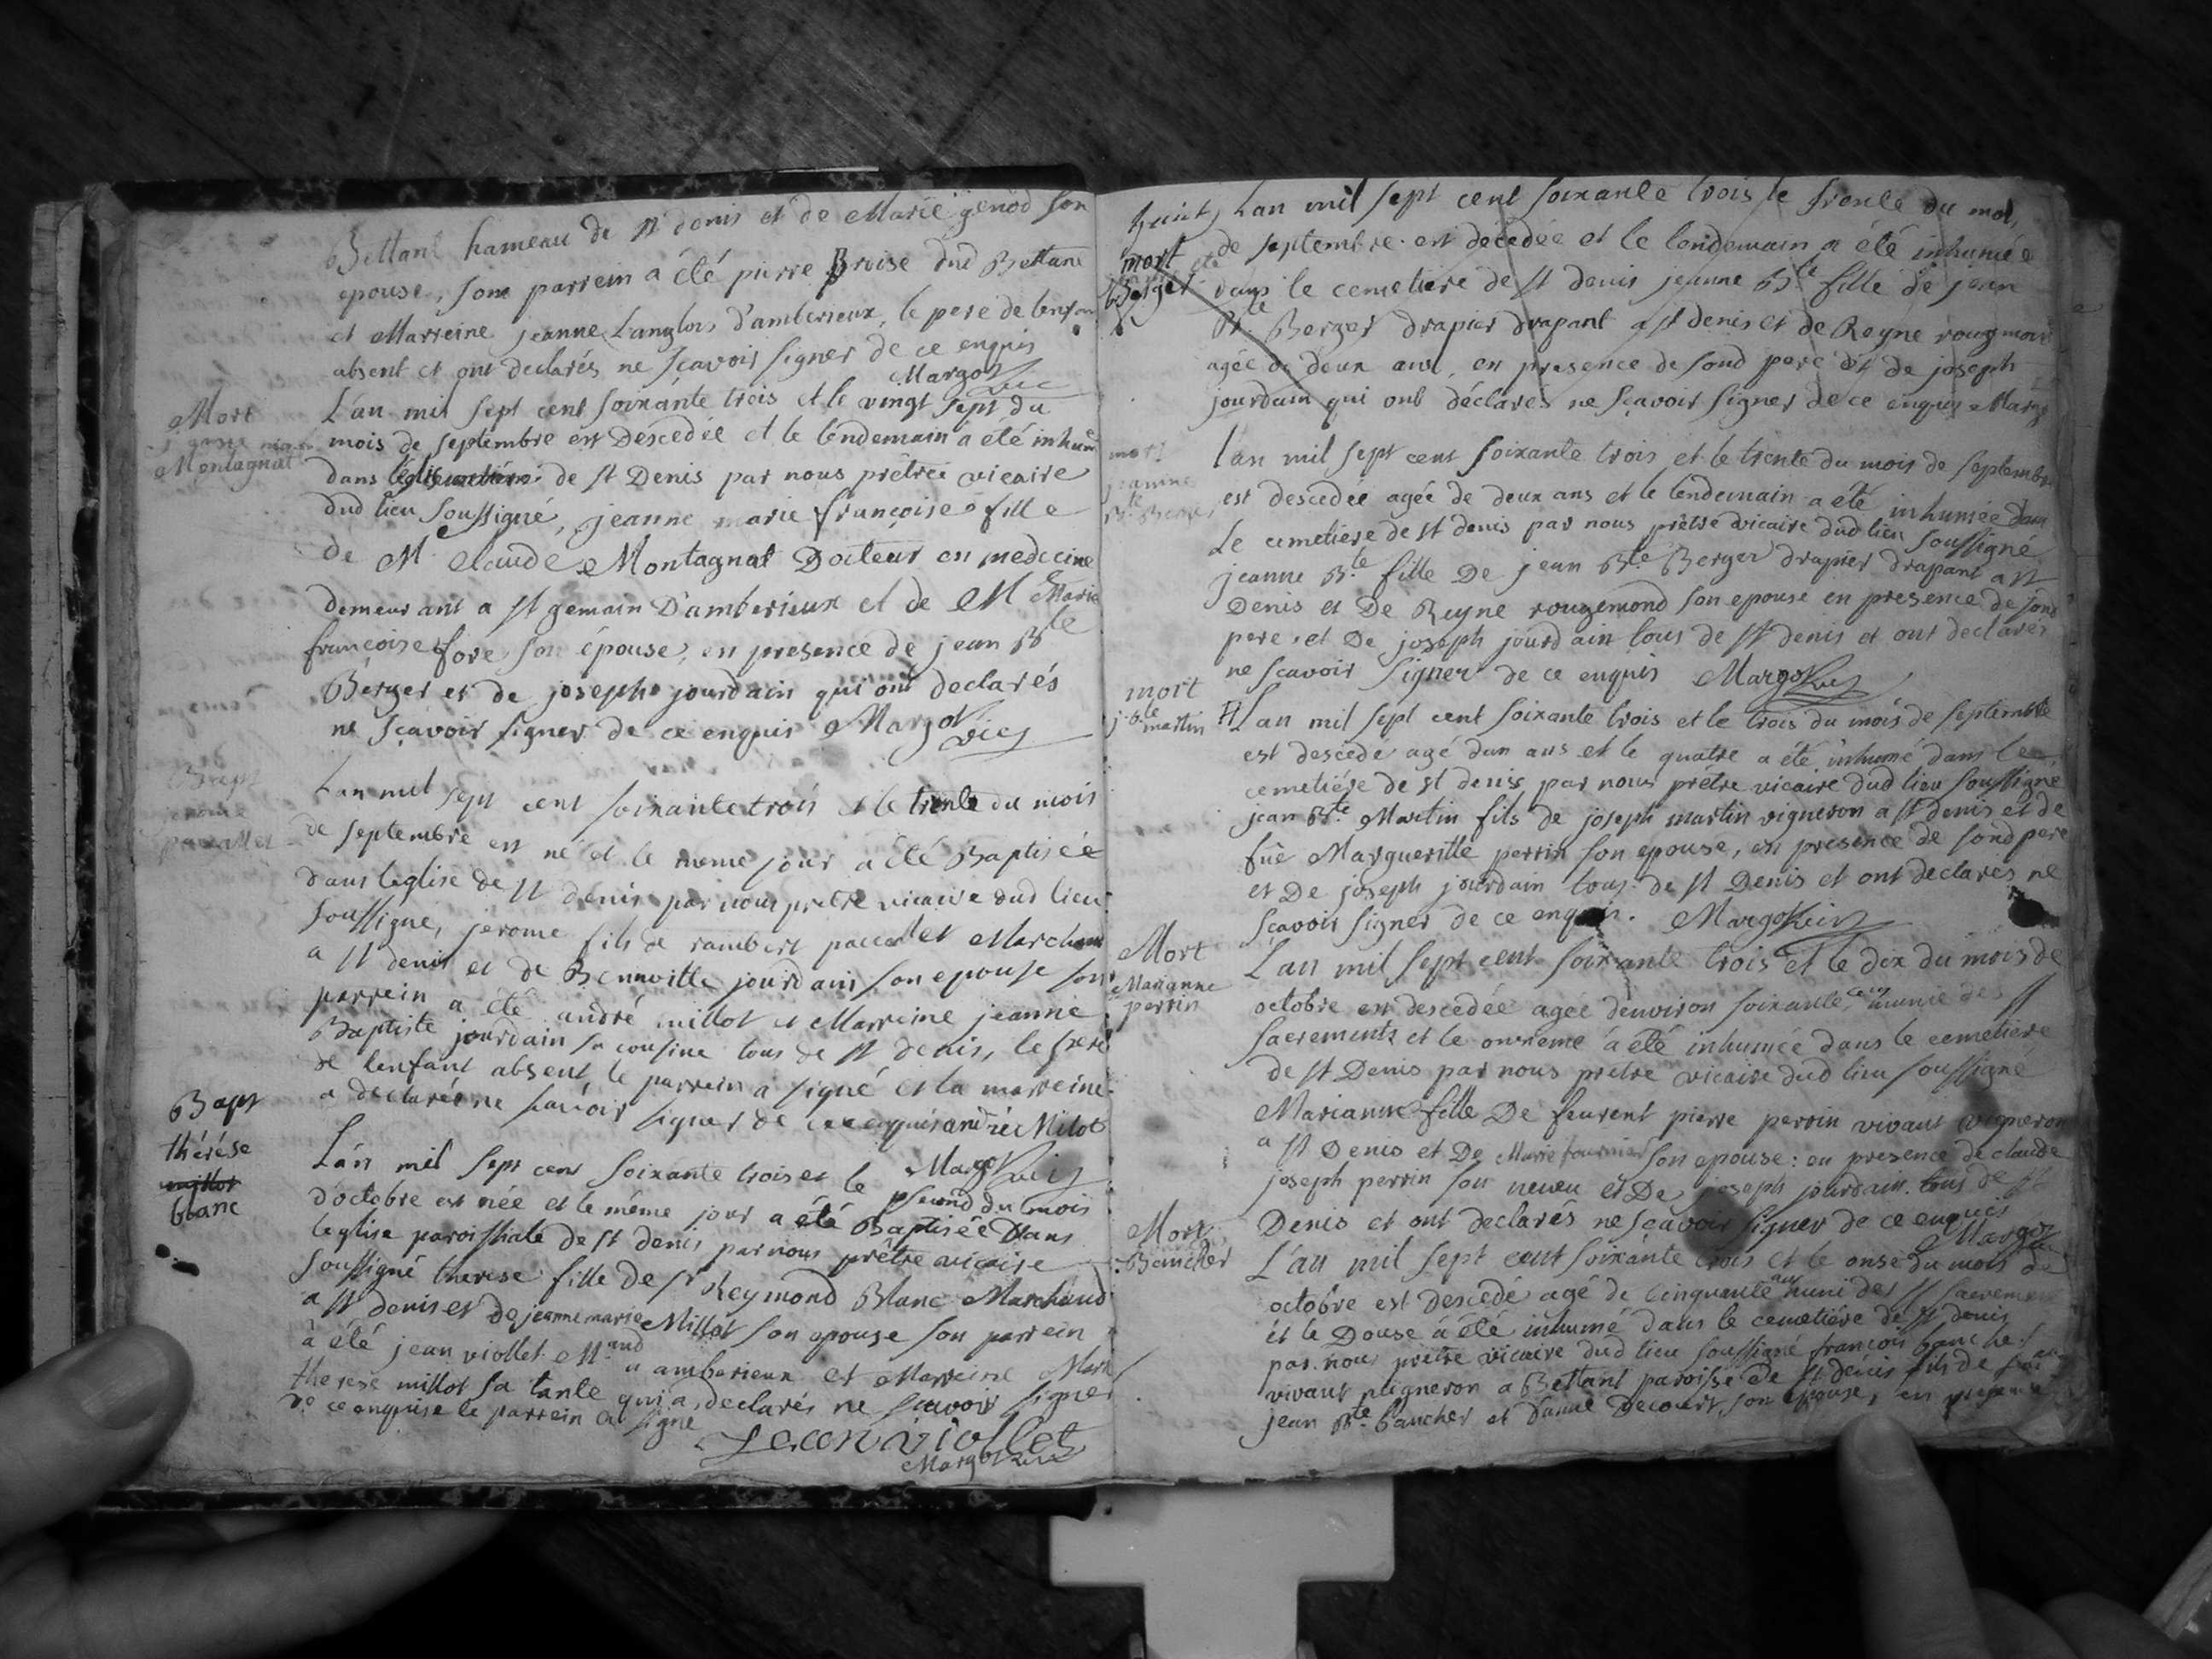 Bettant hameau de st denis et de Marie genod son
epouse, son parrein a été pierre Broise dud Bettant
et Marreine jeanne Langlois d'amberieux, le pere de lenfan
absent et ont declarés ne scavoir signer de ce enquis
Margot vic
Mort
Montagnat
L'an mil sept cent soixante trois et le vingt sept du
mois de septembre est Descedée et le lendemain a été inhumé
dans léglise de st Denis par nous prêtre vicaire
dud lieu soussigné, jeanne marie françoise fille
de Mr Claude Montagnat Docteur en medecine
demeurant a st gemain D'amberieux et de M Marie
françoise fore son épouse, en presence de jean Bte
Berger et de joseph jourdain qui ont declarés
ne sçavoir signer de ce enquis Margot vic
Bapt
jerome
L'an mil sept cent soixante trois et le trente du mois
de septembre est né et le meme jour a été Baptisée
dans leglise de st denis par nous pretre vicaire dud lieu
soussigné, jerome fils de rambert paccallet Marchand
a st denis et de Bennoitte jourdain son epouse son
parrein a été andré millot et Marreine jeanne
Baptiste jourdain sa cousine tous de st denis, le pere
de lenfant absent le parrein a signé et la marreine
a declarée ne scavoir signer de ce enquis andré Milot
Margot vic
Bapt
thérése
millot
blanc
L'an mil sept cent soixante trois et le second du mois
d'octobre est née et le méme jour a été Baptisée Dans
leglise paroissiale de st denis par nous prêtre vicaire
soussigné therese fille de sr Reymond Blanc Marchand
a st denis et de jeanne marie Millot son epouse son parrein
à été jean viollet Mand a amberieux et Marreine Marie
therese millot sa tante qui a declarés ne scavoir signer
de ce enquise le parrein a signé
Jean viollet
Margot vic
mort
Berger
Lan mil sept cent soixante trois le trente du moi,
de septembre est décédée et le lendemain a été inhumée
dans le cemetiere de st denis jeanne Bte fille de jean
Bte Berger drapier drapant a st denis et de Reyne rougemont
agée de deux ans, en presence de sond pere et de joseph
jourdain qui ont déclarés ne sçavoir signer de ce enquis Margot
mort
jeanne
Bte Berger
l'an mil sept cent soixante trois et le trente du mois de septembre
est descedée agée de deux ans et le lendemain a été inhumée dans
Le cemetiere de st denis par nous prêtre vicaire dud lieu soussigné
jeanne Bte fille De jean Bte Berger drapier drapant a st
Denis et De Reyne rougemond son epouse en presence de sond
pere et De joseph jourdain tous de st denis et ont declarés
ne scavoir signer de ce enquis Margot vic
mort
j. b.te
martin
Lan mil sept cent soixante trois et le trois du mois de septembre
est descede agé dun ans et le quatre a été inhumé dans le
cemetiére de st denis par nous prêtre vicaire dud lieu soussigné
jean Bte Martin fils de joseph martin vigneron a st denis et de
fue Margueritte perrin son epouse, en presence de sond pere
et De joseph jourdain tous de st Denis et ont declarés ne
scavoir signer de ce enquis. Margot vic
Mort
Marianne
perrin
L'an mil sept cent soixante trois et le dix du mois de
octobre est descedée agée denviron soixante ans munie des SS
sacrements et le onzieme a été inhumée dans le cemetiere
de st Denis par nous pretre vicaire dud lieu soussigné
Marianne fille De feurent pierre perrin vivant vigneron
a st Denis et De Marie fournier son epouse: en presence de claude
joseph perrin son neveu et De joseph jourdain tous de st
Denis et ont declarés ne scavoir signer de ce enquis
Margot
Mort
Baucher
L'an mil sept cent soixante trois et le onse du mois de
octobre est descédé agé de cinquante ans muni des SS sacrements
et le Douse a été inhumé dans le cemetiére de st denis
par nous pretre vicaire dud lieu soussigné francois baucher
vivant vigneron a Bettant paroisse de st denis fils de
jean Bte baucher et danne Decourt son epouse, en presence